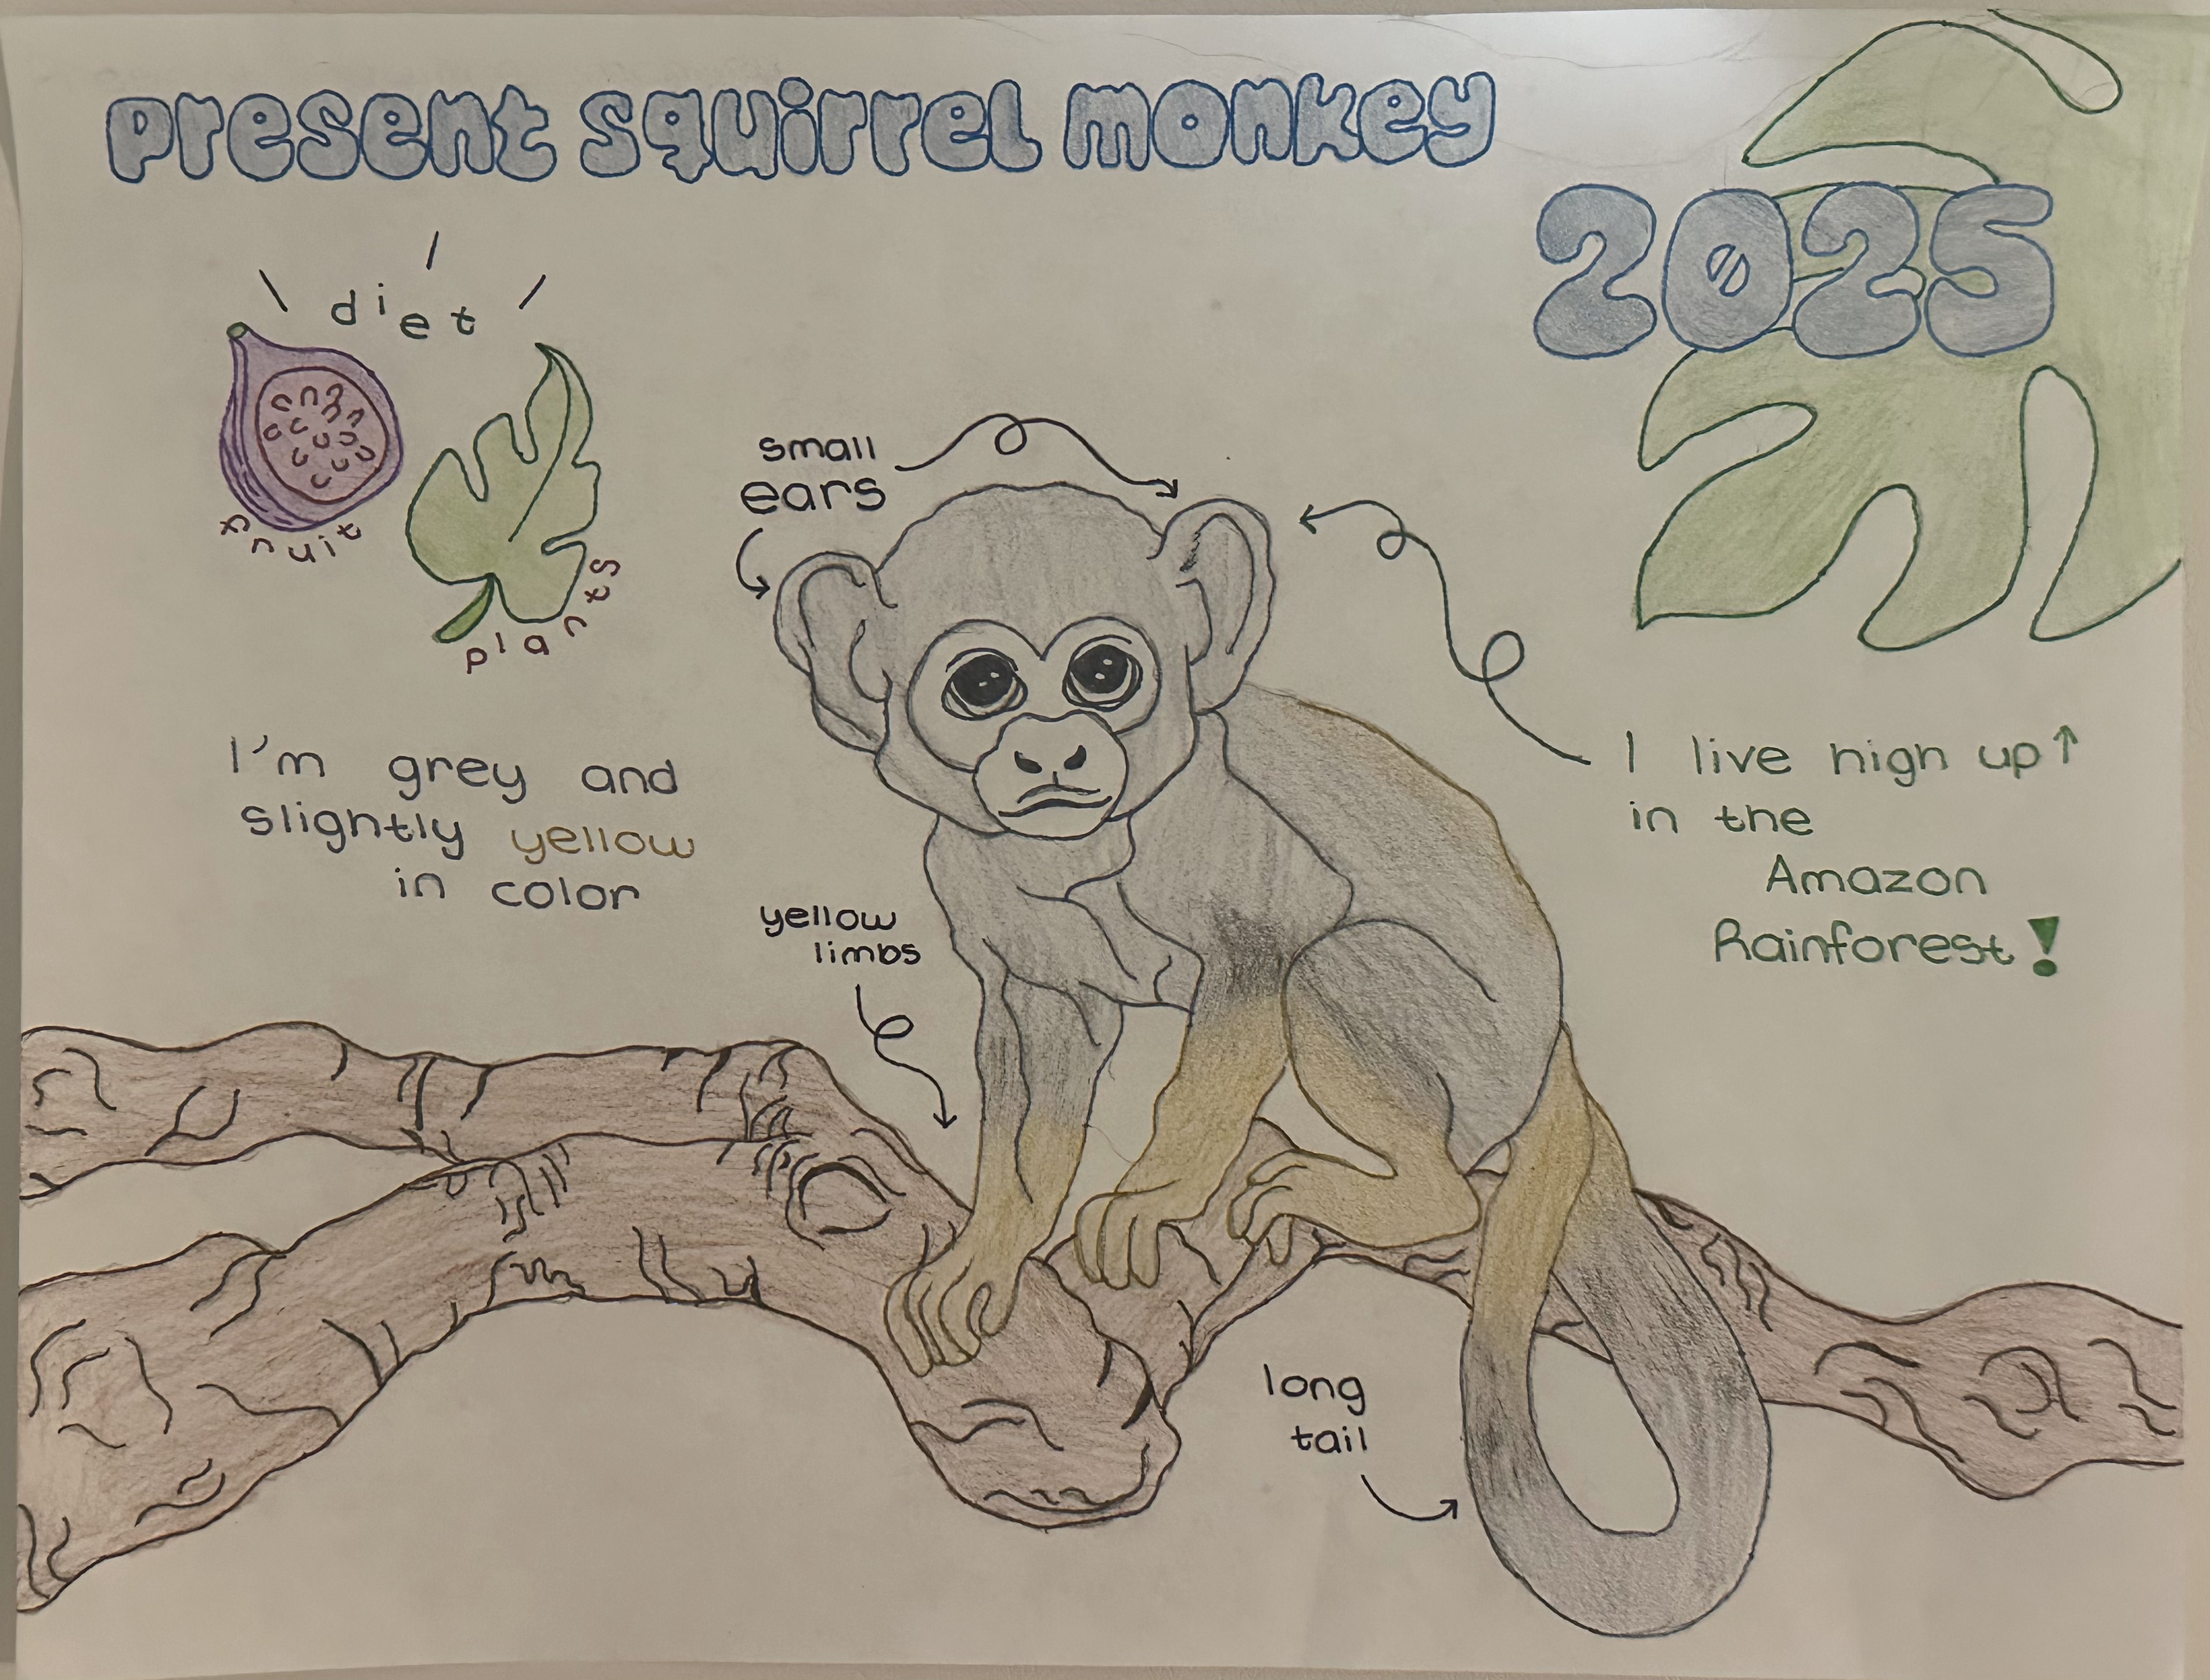 present squirrel monkey
2025
diet
fruit
plants
small
ears
I'm grey and
slightly yellow
in color
yellow
limbs
I live high up↑
in the
Amazon
Rainforest!
long
tail